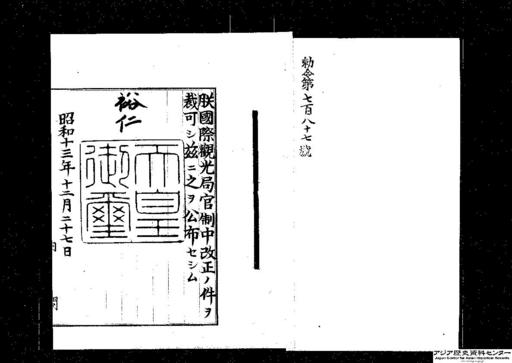 勅令第七百八十七號
朕國際觀光局官制中改正ノ件ヲ
裁可シ玆ニ之ヲ公布セシム
裕仁
天皇
御璽
昭和十三年十二月二十七日
アジア歴史資料センター
Japan Center for Asian Historical Records